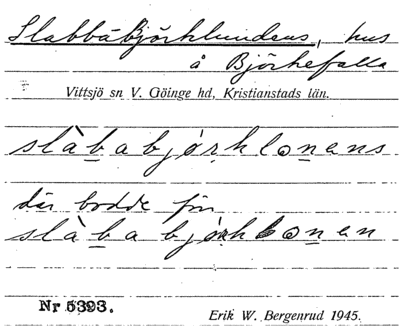 Slabbabjörklundens, hus
å Björkefalla
Vittsjö sn V. Göinge hd, Kristianstads län.
slàbabjørklonens
där bodde förr
slàbabjørklonen
Nr 5393.
Erik W. Bergenrud 1945.